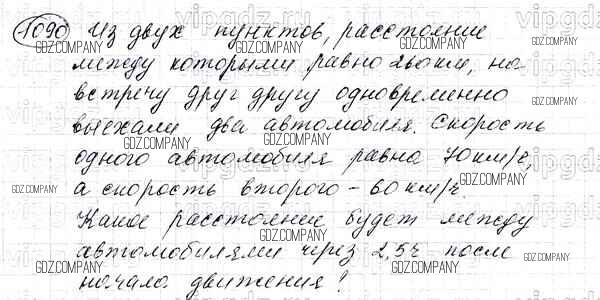 1090 Из двух пунктов, расстояние
между которыми равно 260 км, на-
встречу друг другу одновременно
выехали два автомобиля. Скорость
одного автомобиля равна 70 км/ч,
а скорость второго – 60 км/ч.
Какое расстояние будет между
автомобилями через 2,5ч после
начала движения?
GDZ.COMPANY
GDZ.COMPANY
GDZ.COMPANY
GDZ.COMPANY
GDZ.COMPANY
GDZ.COMPANY
GDZ.COMPANY
GDZ.COMPANY
GDZ.COMPANY
GDZ.COMPANY
GDZ.COMPANY
GDZ.COMPANY